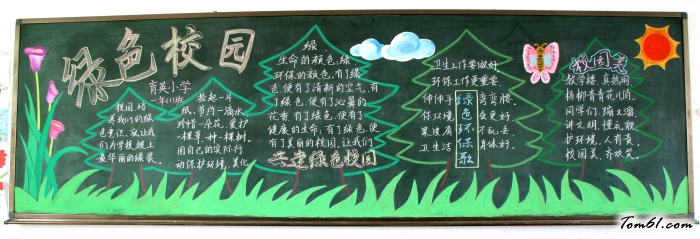 绿色校园
育英小学
一年(1)班
校园,培
养我们的绿
色意识,就让我
们为学校披上
最华丽的绿装。
捡起一片
纸,节约一滴水
珍惜一朵花,爱护
一棵草,种一棵树,
用自己的实际行
动保护环境,美化
绿,
生命的颜色,绿
环保的颜色,有了绿
色,便有了清新的空气,有
了绿色,便有了沁馨的
花香,有了绿色,便有了
健康的生命,有了绿色,便
有了美丽的校园,让我们
共建绿色校园
卫生工作要做好
环保工作更重要,
伸伸手
保环境
果皮屑
卫生活
绿色环保歌
弯弯腰,
会更好
不乱丢,
身体好。
校园美
教学楼,真热闹,
杨柳青青花儿俏。
同学们,
讲文明,懂礼貌
护环境,人有责,
校园美,齐欢笑。
Tom61.com